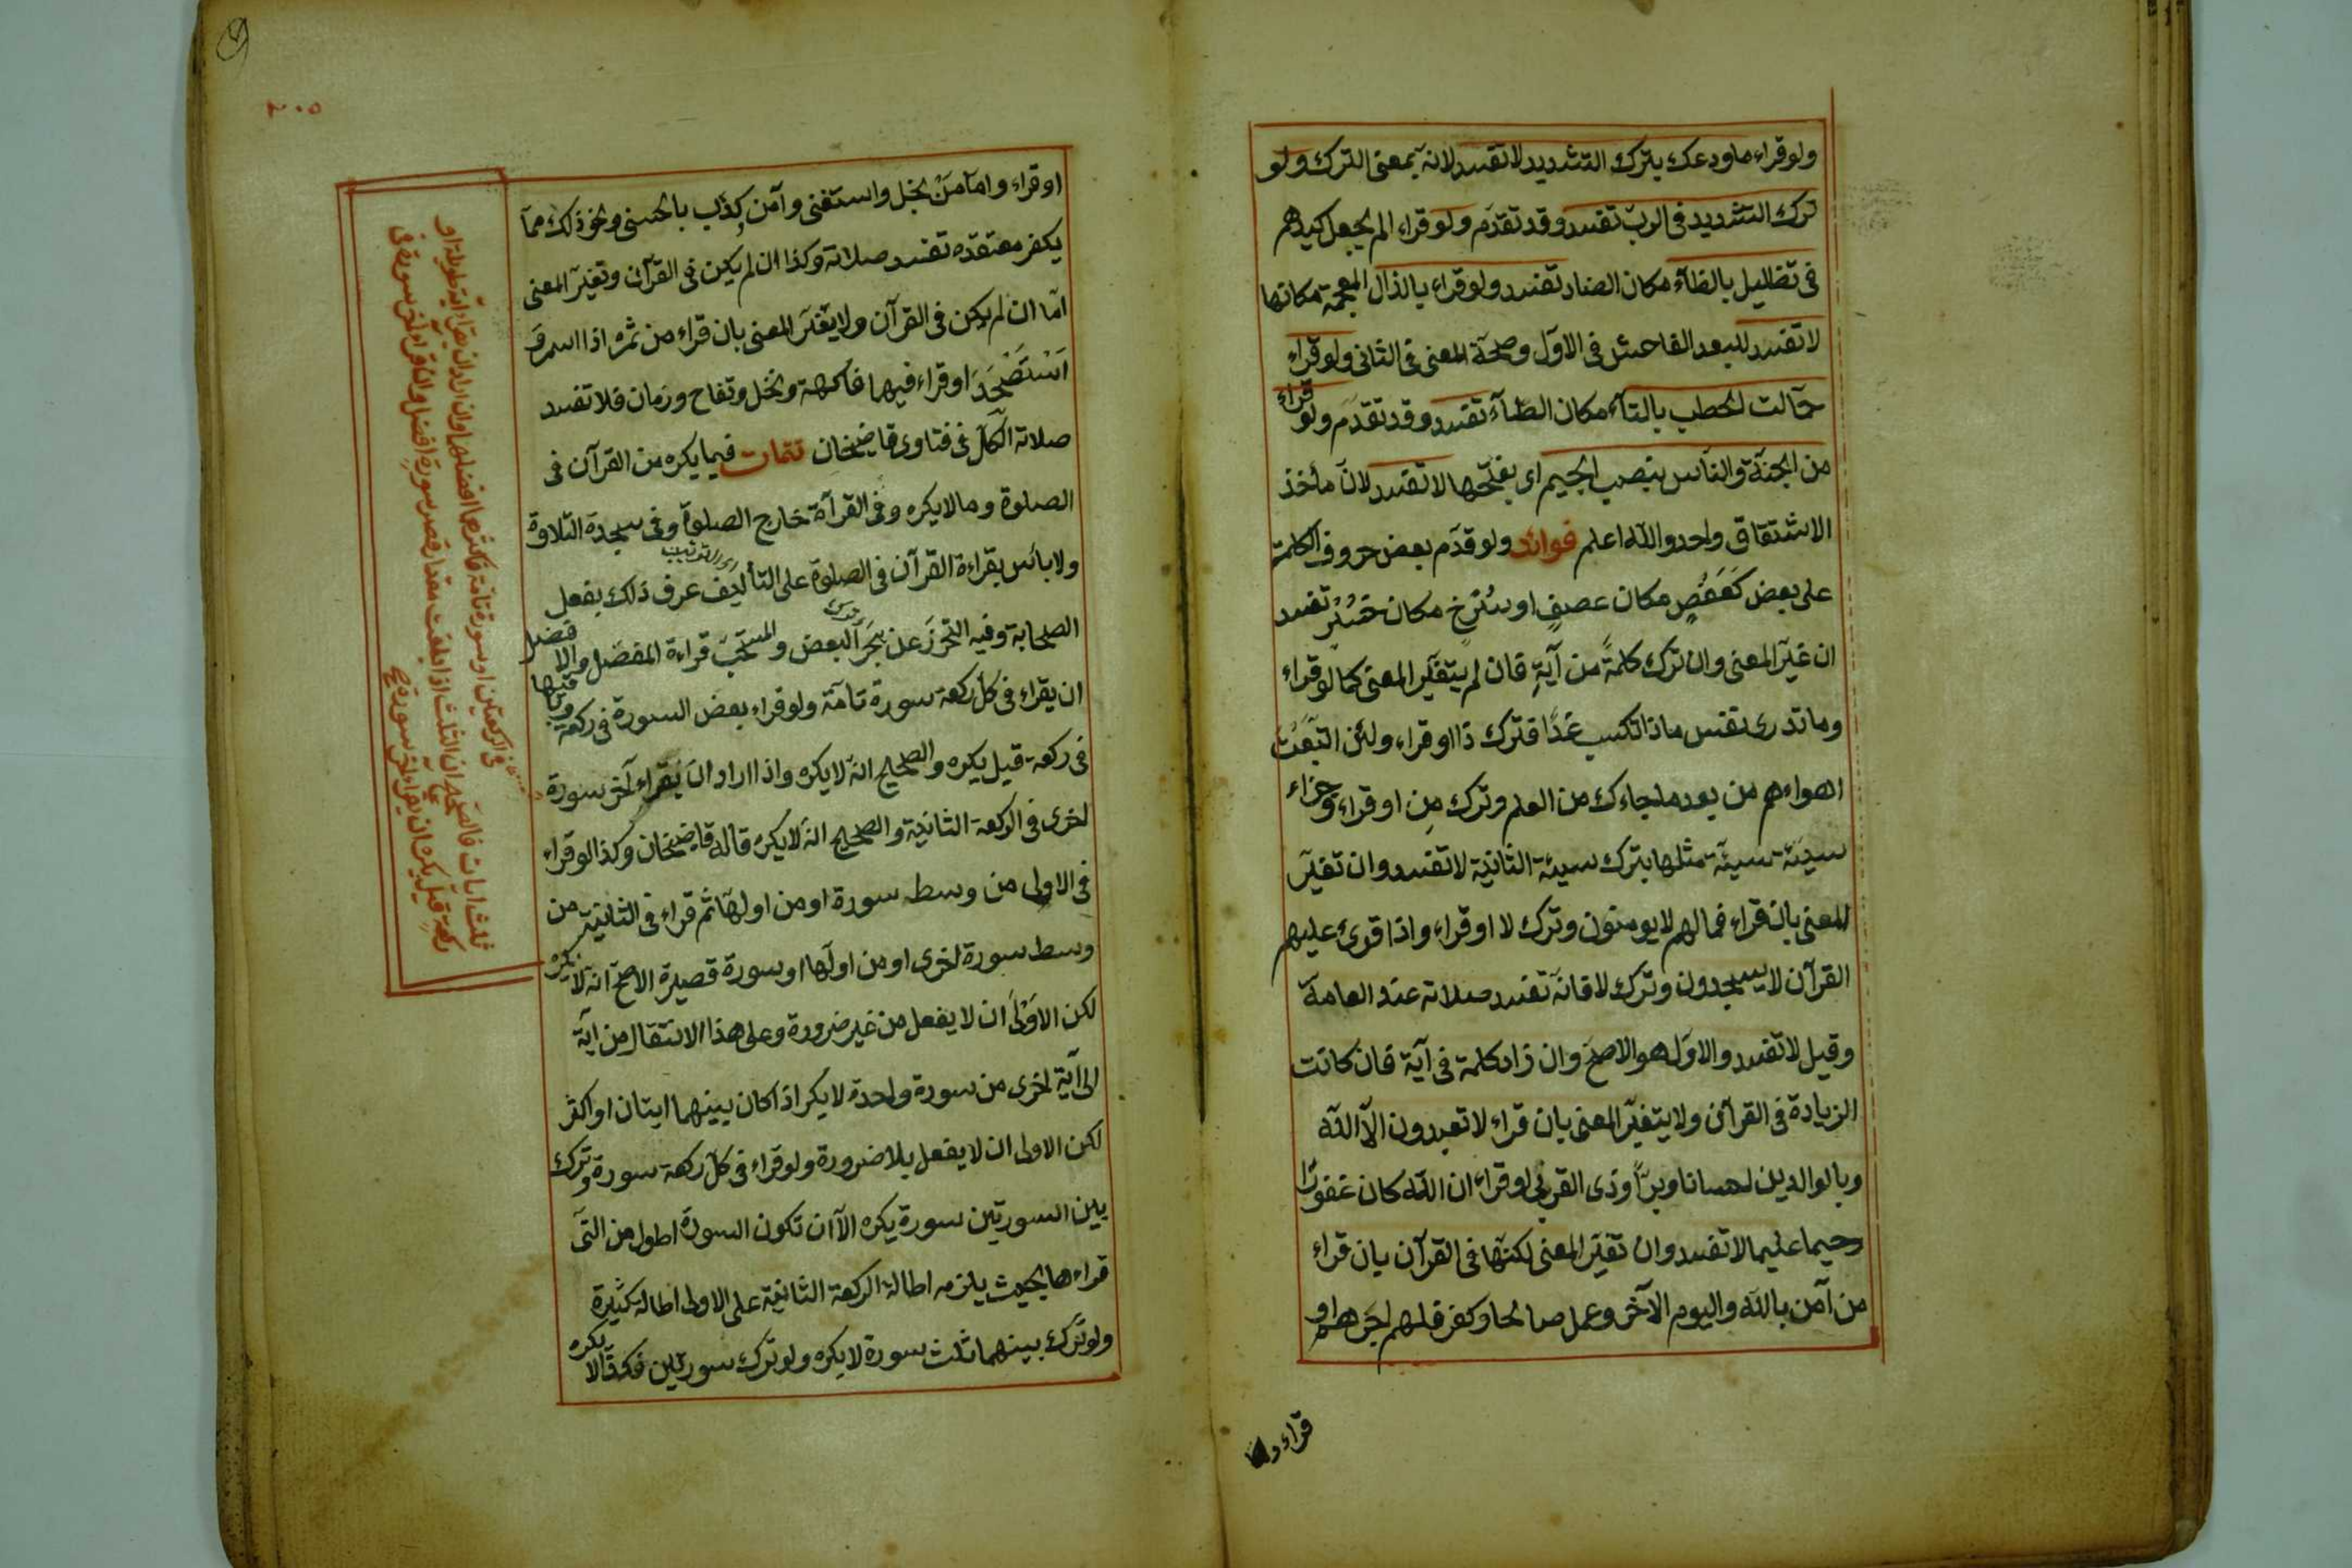 ولو قراء ما ودعك بترك التشديد لا تفسد لانه بمعنى الترك ولو
ترك التشديد فى الرب تفسد وقد تقدم ولو قراء الم يجعل كيدهم
فى تضاليل بالظاء مكان الضاد تفسد ولو قراء بالذال المعجمة مكانها
لا تفسد للبعد الفاحش فى الاول وصحة المعنى فى الثانى ولو قراء
حمالت الحطب بالتاء مكان الطاء تفسد وقد تقدم ولو قراء
من الجنة والناس بنصب الجيم اى بفتحها لا تفسد لان مأخذ
الاشتقاق واحد والله اعلم فوائد ولو قدم بعض حروف الكلمة
على بعض كعفص مكان عصف او سرخ مكان خسر تفسد
ان غير المعنى وان ترك كلمة من آية فان لم يتغير المعنى كما لو قراء
وما تدرى نفس ماذا تكسب غدا فترك ذا او قراء ولئن اتبعت
اهواءهم من بعد ما جاءك من العلم وترك من او قراء وجزاء
سيئة سيئة مثلها بترك سيئة الثانية لا تفسد وان تغير
المعنى بان قراء فما لهم لا يومنون وترك لا او قراء واذا قرئ عليهم
القرآن لا يسجدون وترك لا فانه تفسد صلاته عند العامة
وقيل لا تفسد والاول هو الاصح وان زاد كلمة فى آية فان كانت
الزيادة فى القرآن ولا يتغير المعنى بان قراء لا تعبدون الا الله
وبالوالدين احسانا وبرا وذى القربى او قراء ان الله كان غفورا
رحيما عليما لا تفسد وان تغير المعنى لكنها فى القرآن بان قراء
من آمن بالله واليوم الآخر وعمل صالحا وكفر فلهم اجرهم او
قراء واما
٢٠٥
او قراء واما من بخل واستغنى وآمن وكذب بالحسنى ونحو ذلك مما
يكفر معتقده تفسد صلاته وكذا ان لم يكن فى القرآن وتغير المعنى
اما ان لم يكن فى القرآن ولا يتغير المعنى بان قراء من ثمره اذا اثمر و
استحصد او قراء فيها فاكهة ونخل وتفاح ورمان فلا تفسد
صلاته الكل فى فتاوى قاضيخان تتمات فيما يكره من القرآن فى
الصلوة وما لا يكره وفى القرآة خارج الصلوة وفى سجدة التلاوة
ولا بائس بقراءة القرآن فى الصلوة على التأليف عرف ذلك بفعل
اى الترتيب
الصحابة وفيه التحرز عن هجر البعض والمستحب قراءة المفصل والافضل
ان يقراء فى كل ركعة سورة تامة ولو قراء بعض السورة فى ركعة وباقيها
فى ركعة قيل يكره والصحيح انه لا يكره واذا اراد ان يقراء آخر سورة
اخرى فى الركعة الثانية والصحيح انه لا يكره قاله قاضيخان وكذا لو قراء
فى الاولى من وسط سورة او من اولها ثم قراء فى الثانية من
وسط سورة اخرى او من اولها او سورة قصيرة الاصح انه لا يكره
لكن الاولى ان لا يفعل من غير ضرورة وعلى هذا الانتقال من آية
الى آية اخرى من سورة واحدة لا يكر اذا كان بينهما ايتان او اكثر
لكن الاولى ان لا يفعل بلا ضرورة ولو قراء فى كل ركعة سورة وترك
بين السورتين سورة يكره الا ان تكون السورة اطول من التى
قراءها بحيث يلزمه اطالة الركعة الثانية على الاولى اطالة كثيرة
ولو ترك بينهما ثلث سورة لا يكره ولو ترك سورتين فكذا لا يكره
فى الركعتين او سورة تامة فاكثرهما افضلهما وان اراد ان يقراء آية طويلة او
ثلث ايات فالصحيح ان الثلث اذا بلغت مقدار قصر سورة افضل ولو قراء آخر سورة فى
ركعة قيل يكره ان يقراء آخر سورة